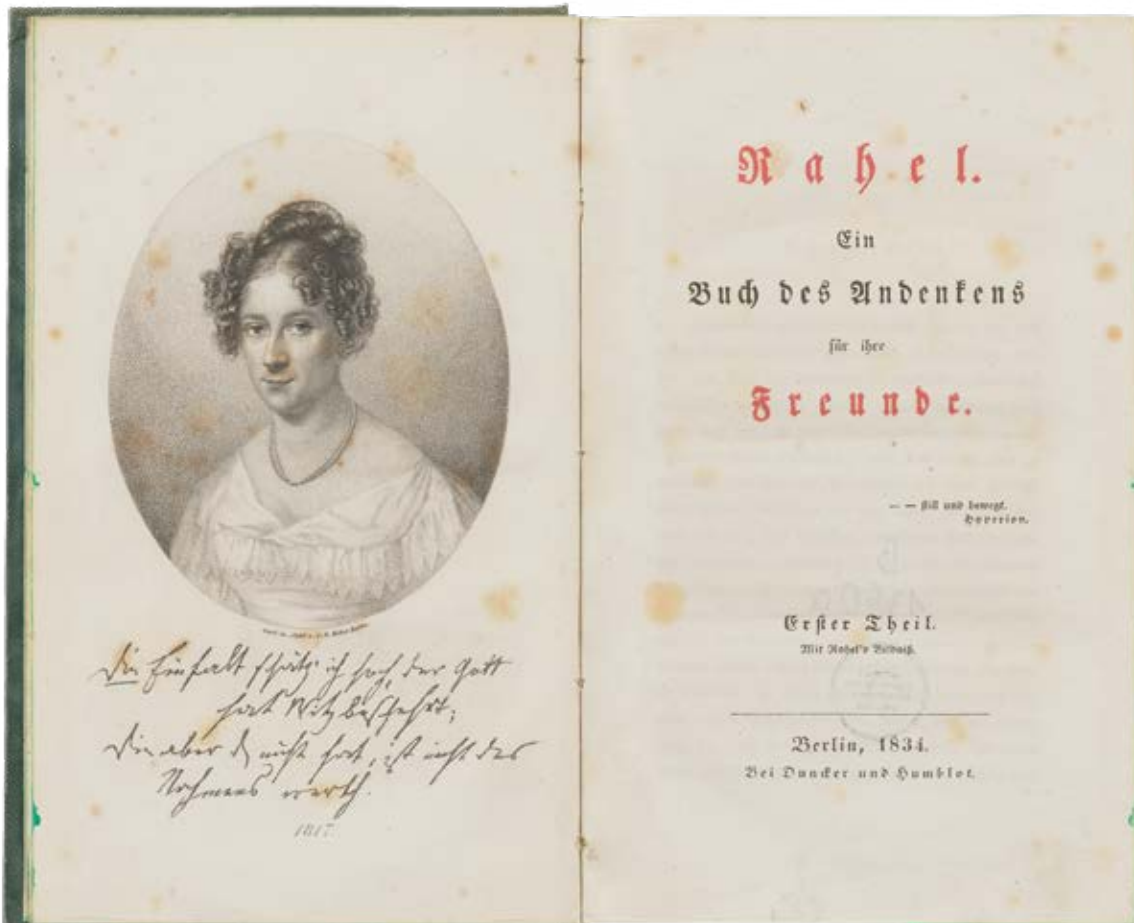 Die Einfalt schätz' ich hoch, der Gott
hat Witz beschehrt;
Die aber nicht hat, ist nicht des
Nahmens werth.
1817.
Rahel.
Ein
Buch des Andenkens
für ihre
Freunde.
— — still und bewegt.
Hyperion.
Erster Theil.
Mit Rahel's Bildniß.
Berlin, 1834.
Bei Duncker und Humblot.